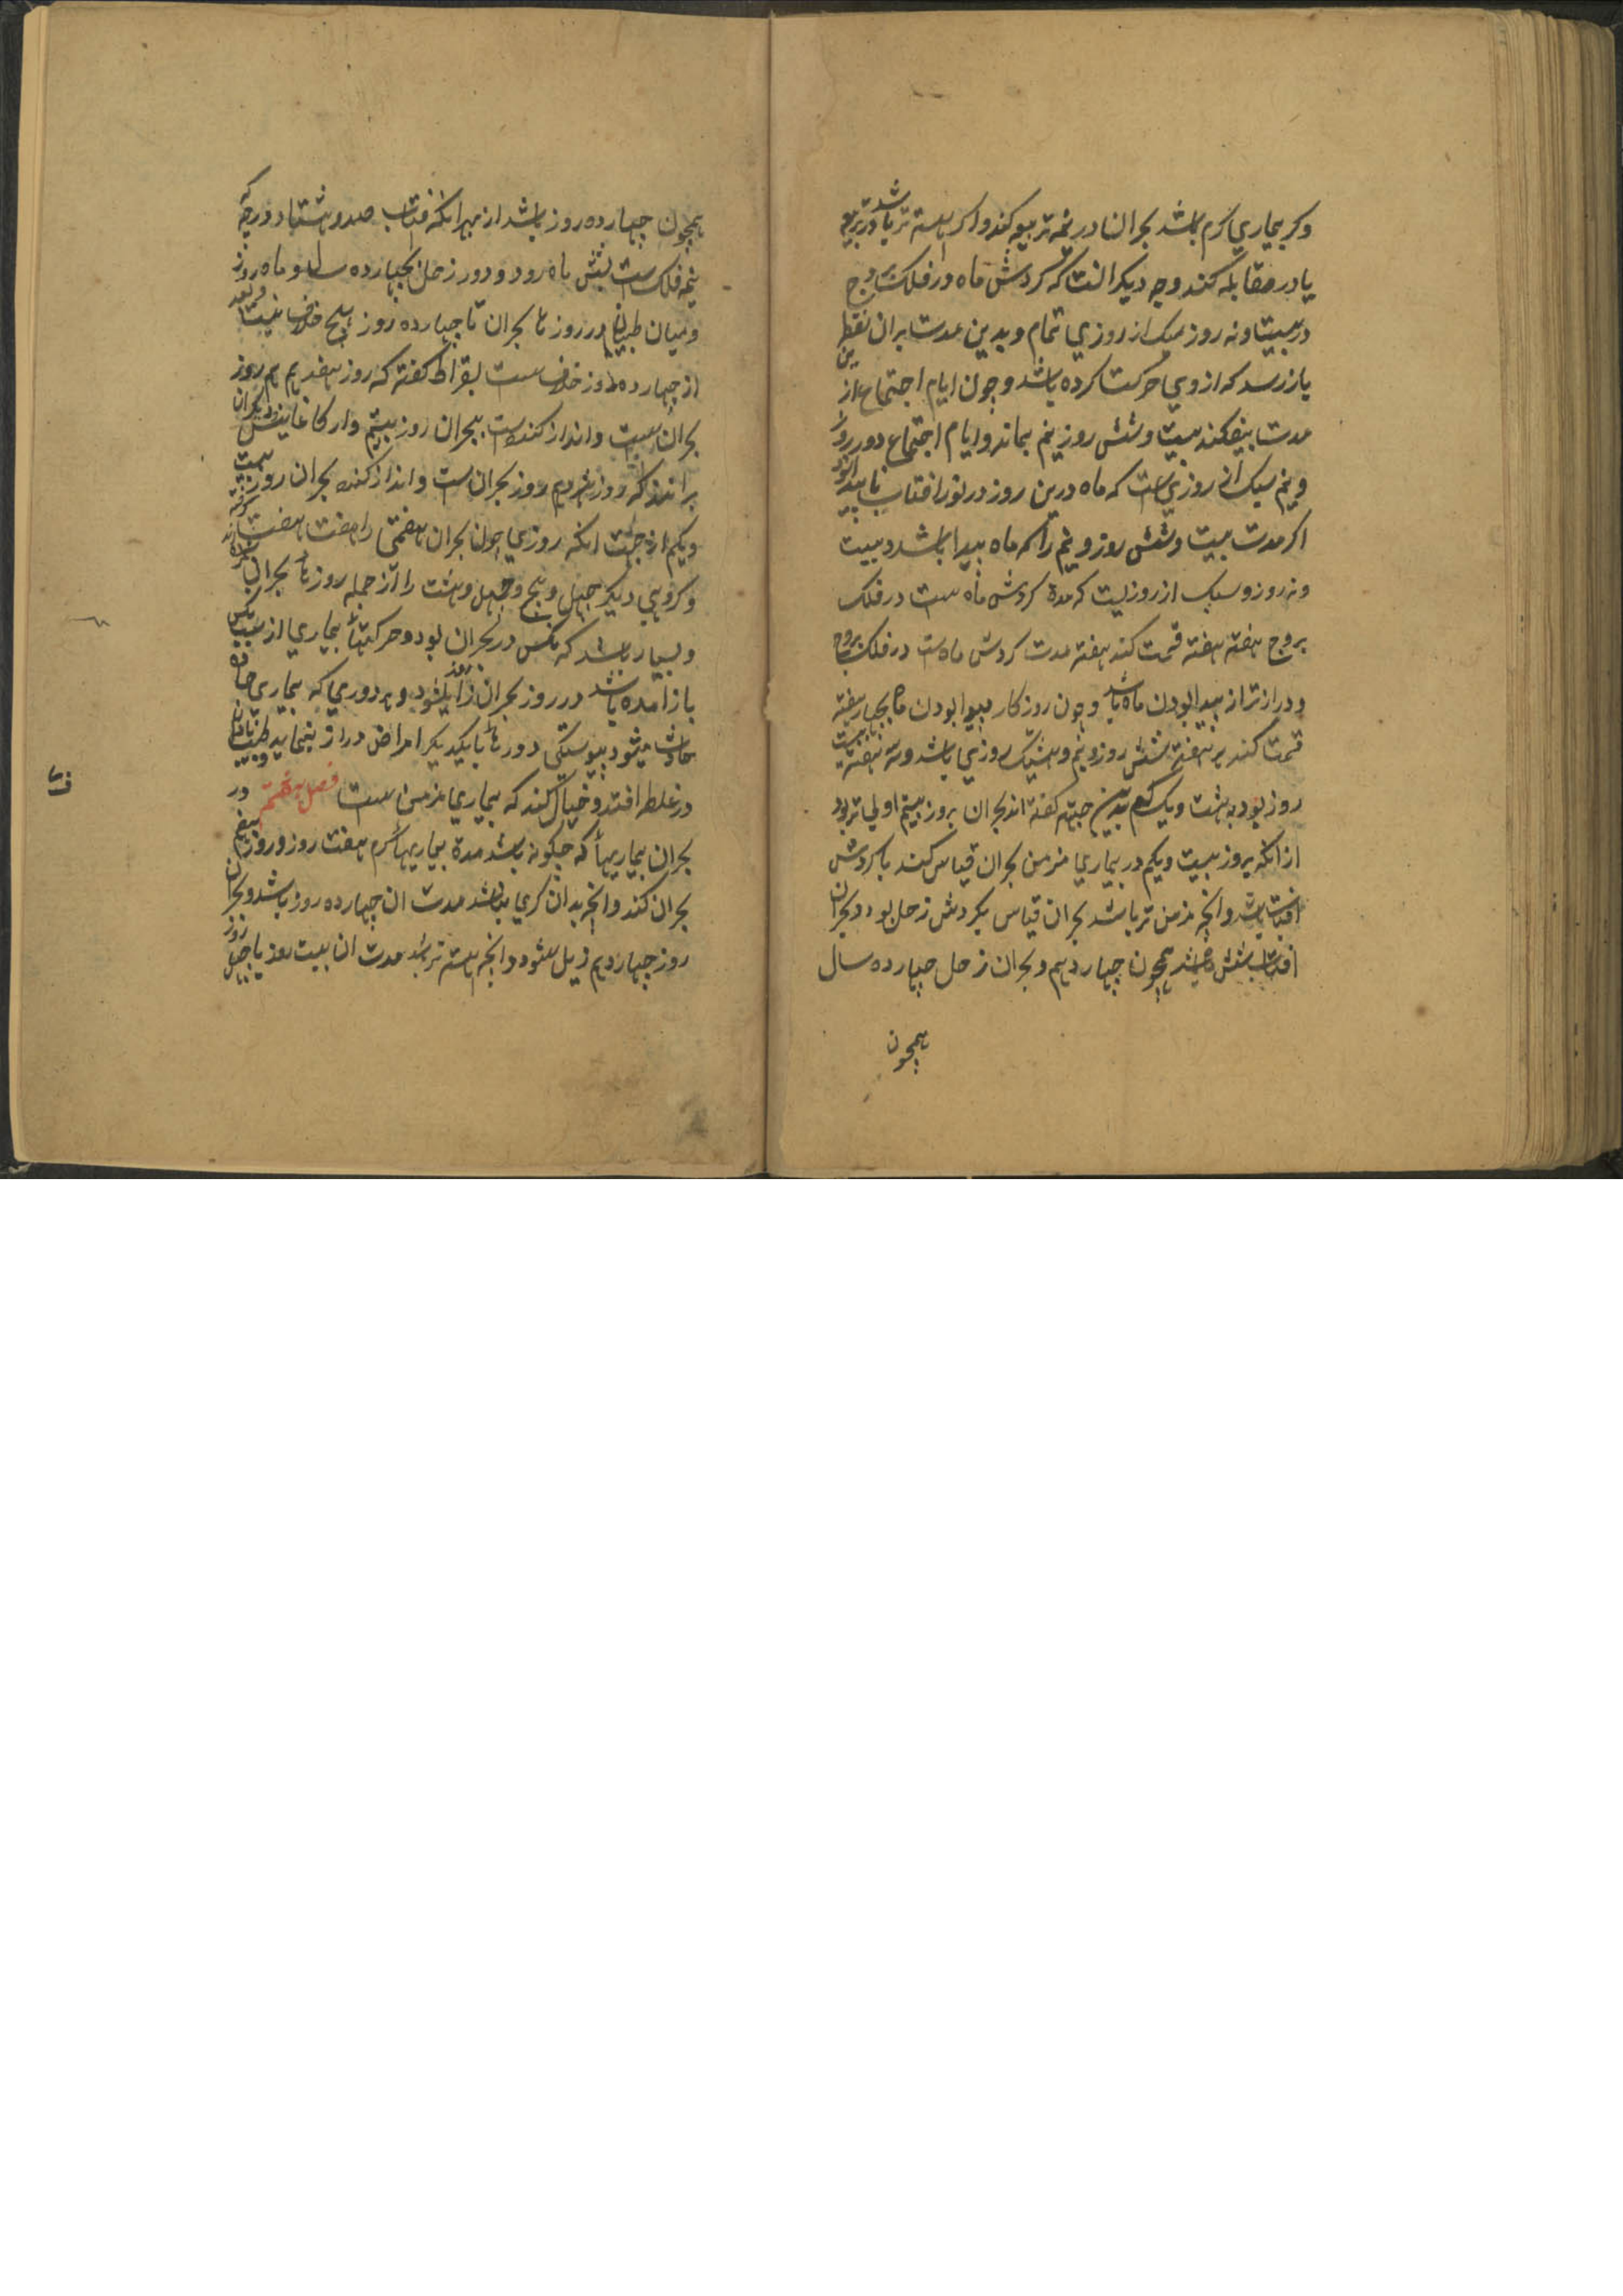 وکر بیماری کرم باشد بحرانها در نیمه تربیع کند واکر اهسته تر باشد در تربیع
یا در مقابله کند وجه دیکر انست که کردش ماه در فلک بروج
در بیست ونه روز وسیک از روزی تمام وبدین مدت بران نقطه
باز رسد که از وی حرکت کرده باشد وچون ایام اجتماع از این
مدت بیفکند بیست وشش روز نیم بماند وایام اجتماع دو روز
ونیم سیک از روزی ست که ماه درین روز در نور افتاب ناپیدا بود
اکر مدت بیست وشش روز ونیم را که ماه پیدا باشد وبیست
ونه روز وسیک از روزیست که مدة کردش ماه ست در فلک
بروج هفته هفته قسمت کند هفته مدت کردش ماه ست در فلک بروج
ودرازتر از پیدا بودن ماه باشد وچون روزکار پیدا بودن ماه بچهار هفته
قسمت کند هر هفته شش روز ونیم وهشیک روزی باشد وسه هفته بیست
روز بود بهشت ویک کم بدین جهت کفته اند بحران بروز بیستم اولی تر بود
از انکه بروز بیست ویکم در بیماری مزمن بحران قیاس کند بکردش
افتاب باشد وانچه مزمن تر باشد بحران قیاس بکردش زحل بود وبحران
افتاب شش ماه باشد همچون چهاردهم وبحران زحل چهارده سال
همچون
همچون چهارده روز باشد از بهر انکه افتاب صد وهشتاد درجه که
نیمه فلک ست بشش ماه رود ودور زحل بچهارده سال وماه روز
ومیان طبیبان در روزهاء بحران تا چهارده روز هیچ خلاف نیست وبعد
از چهارده روز خلاف ست بقراط کفته که روز هفدهم هم روز
بحران ست وانداز کننده است ببحران روز بیستم وارکاغانیس ودیکران
برانند که روز هژدهم روز بحران ست وانداز کننده بحران روز بیست
ویکم از جهت انکه روزی چون بحران هفتمی را هفت هفت شمرند
وکروهی دیکر چهل وپنج وچهل وهشت را از جمله روزهاء بحران
وبسیار باشد که نکس در بحران بود وحرکتهاء بیماری از سبب نکس
باز امده باشد در روز بحران زائل شود وهر دوری که بیماری حاده
حادث میشود بپیوستکی دورهاء با یکدیکر امراض دراز بنماید وطبیب نادان
در غلط افتد وخیال کند که بیماری مزمن ست فصل هشتم در
بحران بیماریها که چکونه باشد مدة بیماریهاء کرم هفت روز وروز هفتم
بحران کند وانچه بدان کرمی نباشد مدت ان چهارده روز باشد وبحران
روز چهاردهم زیل شود وانچه اهسته تر باشد مدت ان بیست روز یا چهل روز